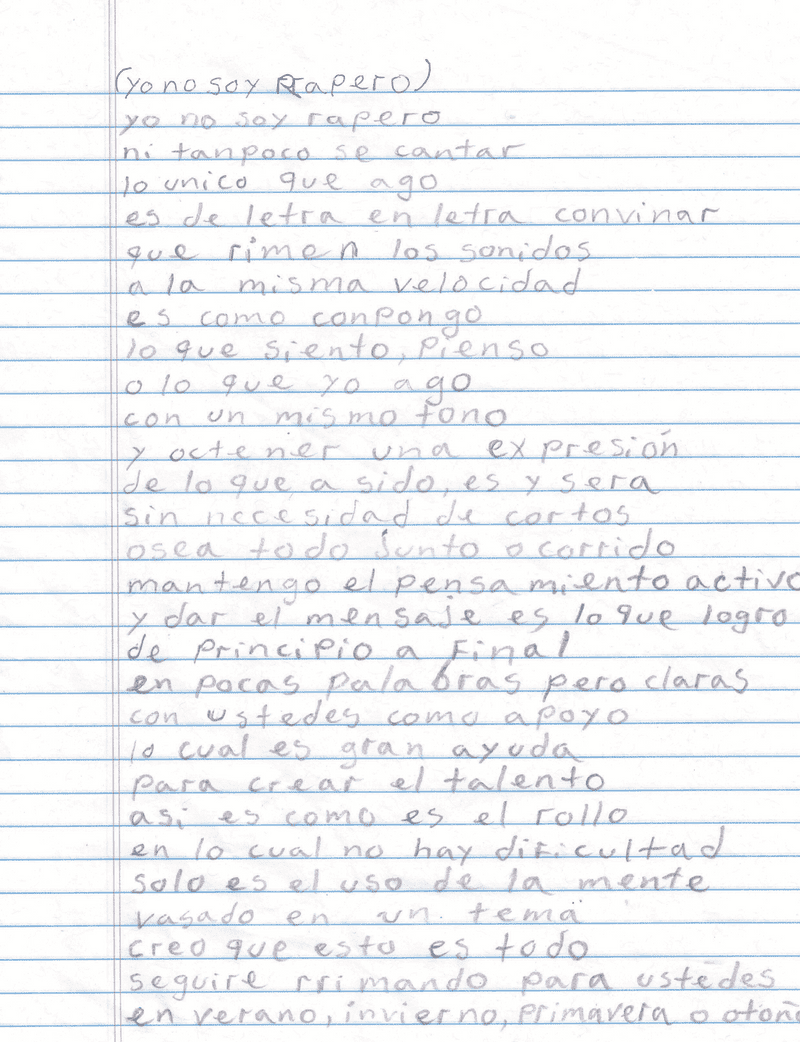 (yo no soy Rapero)
yo no soy rapero
ni tanpoco se cantar
lo unico que ago
es de letra en letra convinar
que rimen los sonidos
a la misma velocidad
es como conpongo
lo que siento, pienso
o lo que yo ago
con un mismo tono
y octener una expresión
de lo que a sido, es y sera
sin necesidad de cortos
osea todo junto o corrido
mantengo el pensamiento activo
y dar el mensaje es lo que logro
de principio a Final
en pocas palabras pero claras
con ustedes como apoyo
lo cual es gran ayuda
para crear el talento
asi es como es el rollo
en lo cual no hay dificultad
solo es el uso de la mente
vasado en un tema
creo que esto es todo
seguire rrimando para ustedes
en verano, invierno, primavera o otoño